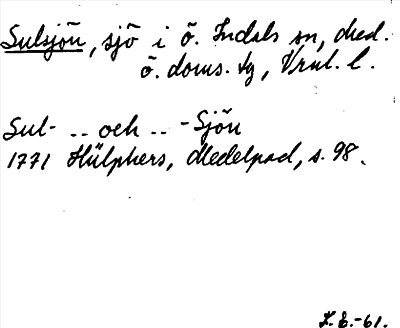 Sulsjön, sjö i ö. Indals sn, Med.
ö. doms. tg, Vrnl. l.
Sul- .. och .. -Sjön
1771 Hülphers, Medelpad, s. 98.
L. E. -61.